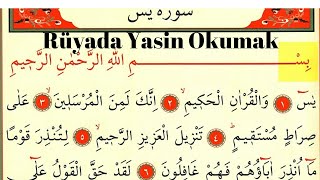 سورة يس
Rüyada Yasin Okumak
بِسْمِ اللّٰهِ الرَّحْمٰنِ الرَّحٖيمِ
يٰسٓ ﴿١﴾ وَالْقُرْاٰنِ الْحَكٖيمِ ﴿٢﴾ اِنَّكَ لَمِنَ الْمُرْسَلٖينَ ﴿٣﴾ عَلٰى
صِرَاطٍ مُسْتَقٖيمٍ ﴿٤﴾ تَنْزٖيلَ الْعَزٖيزِ الرَّحٖيمِ ﴿٥﴾ لِتُنْذِرَ قَوْمًا
مَٓا اُنْذِرَ اٰبَٓاؤُ۬هُمْ فَهُمْ غَافِلُونَ ﴿٦﴾ لَقَدْ حَقَّ الْقَوْلُ عَلٰٓى